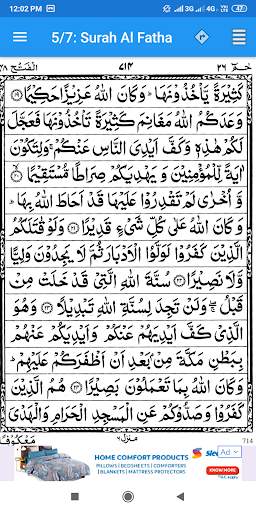 12:02 PM 4G 4G 47
5/7: Surah Al Fatha
الفتح ٤٨ ٧١٤ حٰم ٢٦
كَثِيْرَةً يَّاْخُذُوْنَهَا ؕ وَكَانَ اللّٰهُ عَزِيْزًا حَكِيْمًا ۝١٩
وَعَدَكُمُ اللّٰهُ مَغَانِمَ كَثِيْرَةً تَاْخُذُوْنَهَا فَعَجَّلَ
لَكُمْ هٰذِهٖ وَكَفَّ اَيْدِىَ النَّاسِ عَنْكُمْ ۚ وَلِتَكُوْنَ
اٰيَةً لِّلْمُؤْمِنِيْنَ وَيَهْدِيَكُمْ صِرَاطًا مُّسْتَقِيْمًا ۝٢٠
وَّاُخْرٰى لَمْ تَقْدِرُوْا عَلَيْهَا قَدْ اَحَاطَ اللّٰهُ بِهَا ؕ
وَكَانَ اللّٰهُ عَلٰى كُلِّ شَىْءٍ قَدِيْرًا ۝٢١ وَلَوْ قٰتَلَكُمُ
الَّذِيْنَ كَفَرُوْا لَوَلَّوُا الْاَدْبَارَ ثُمَّ لَا يَجِدُوْنَ وَلِيًّا
وَّلَا نَصِيْرًا ۝٢٢ سُنَّةَ اللّٰهِ الَّتِىْ قَدْ خَلَتْ مِنْ
قَبْلُ ۖ وَلَنْ تَجِدَ لِسُنَّةِ اللّٰهِ تَبْدِيْلًا ۝٢٣ وَهُوَ
الَّذِىْ كَفَّ اَيْدِيَهُمْ عَنْكُمْ وَاَيْدِيَكُمْ عَنْهُمْ
بِبَطْنِ مَكَّةَ مِنْۢ بَعْدِ اَنْ اَظْفَرَكُمْ عَلَيْهِمْ ؕ
وَكَانَ اللّٰهُ بِمَا تَعْمَلُوْنَ بَصِيْرًا ۝٢٤ هُمُ الَّذِيْنَ
كَفَرُوْا وَصَدُّوْكُمْ عَنِ الْمَسْجِدِ الْحَرَامِ وَالْهَدْىَ
منزل ٦ مَعْكُوْفًا
714
HOME COMFORT PRODUCTS
PILLOWS | BEDSHEETS | COMFORTERS
| BLANKETS | MATTRESS PROTECTORS
Ad
KNOW MORE